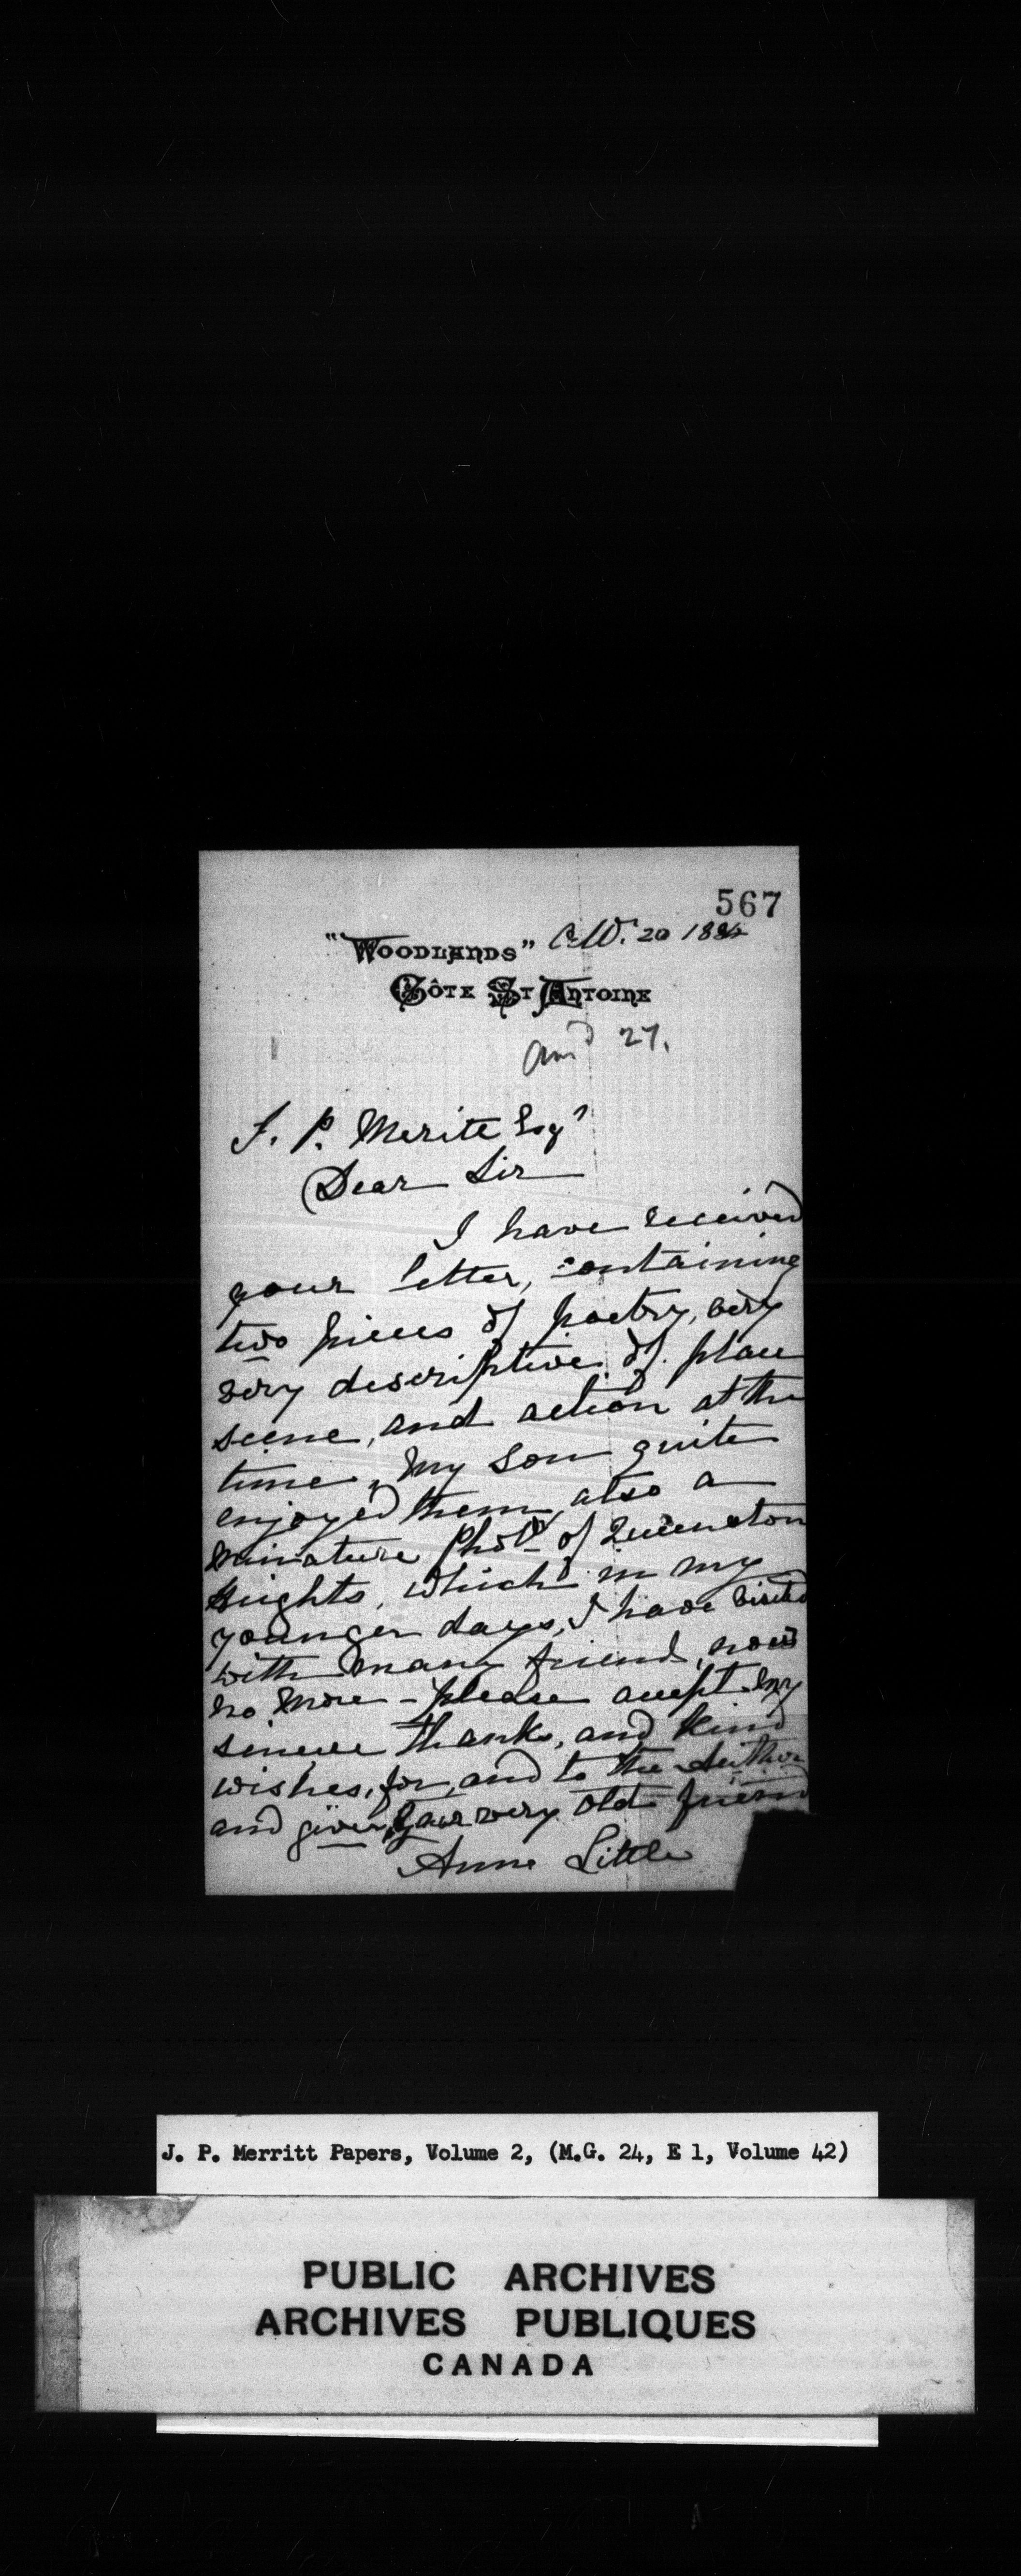 567
"WOODLANDS" 20 188
CÔTE ST ANTOINE
27.
J. P. Merite Esqr
Dear Sir
I have received
your letter, containing
two pieces of poetry, very
very descriptive of place
scene, and action at the
time, My Son quite
enjoyed them, also a
minature Photo of Queenston
Heights, which in my
younger days, I have visited
with many friend, now
no more - please accept my
sincere thanks, and kind
wishes, for, and to the Author
and giver, your very old friend
Anne Little
J. P. Merritt Papers, Volume 2, (M.G. 24, E 1, Volume 42)
PUBLIC ARCHIVES
ARCHIVES PUBLIQUES
CANADA